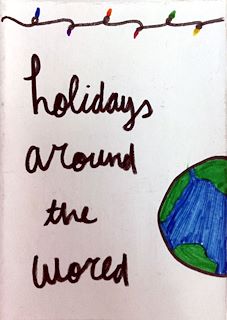 holidays
around
the
world